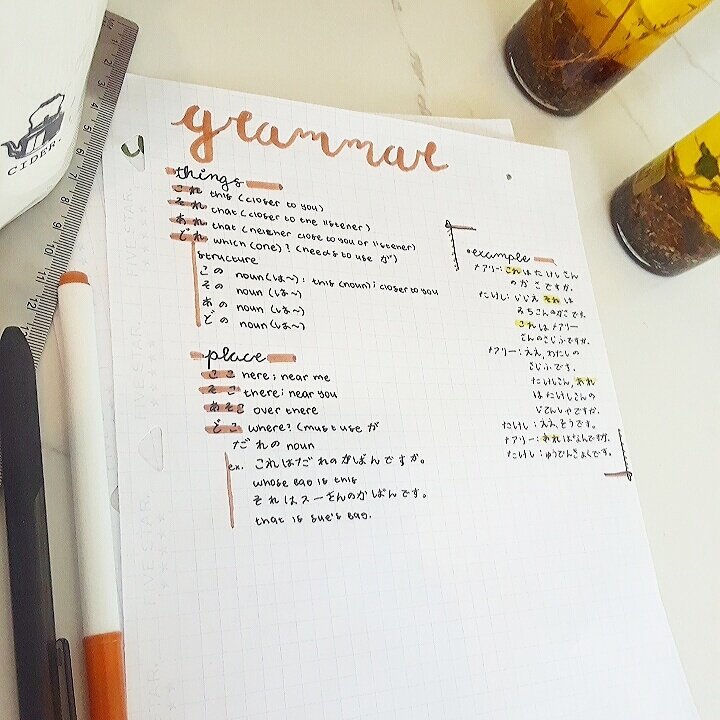 grammar
things
これ this (closer to you)
それ that (closer to the listener)
あれ that (neither close to you or listener)
どれ which (one)? (needs to use が)
structure
この noun (は~): this (noun); closer to you
その noun (は~)
あの noun (は~)
どの noun (は~)
place
ここ here; near me
そこ there; near you
あそこ over there
どこ where? (must use が
だれの noun
ex. これはだれのかばんですか。
whose bag is this
それはスーさんのかばんです。
that is sue's bag.
example
メアリー:これはたけしさん
のかさですか。
たけし:いいえ それは
みちこさんのかさです。
これはメアリー
さんのさいふですか。
メアリー:ええ,わたしの
さいふです。
たけしさん,あれ
はたけしさんの
じてんしゃですか。
たけし:ええ,そうです。
メアリー:あれはなんですか。
たけし:ゆうびんきょくです。
CIDER.
FIVE STAR.